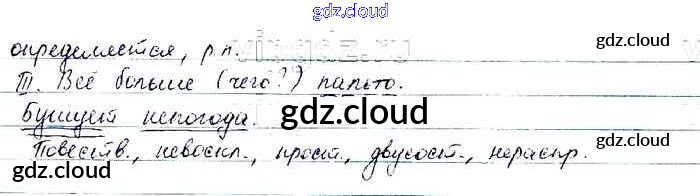 gdz.cloud
определяется, р.п.
vingdz.ru
III. Всё больше (чего?) пальто.
gdz.cloud
Бушует непогода.
gdz.cloud
gdz.cloud
Повеств., невоскл., прост., двусост., нераспр.
gdz.cloud